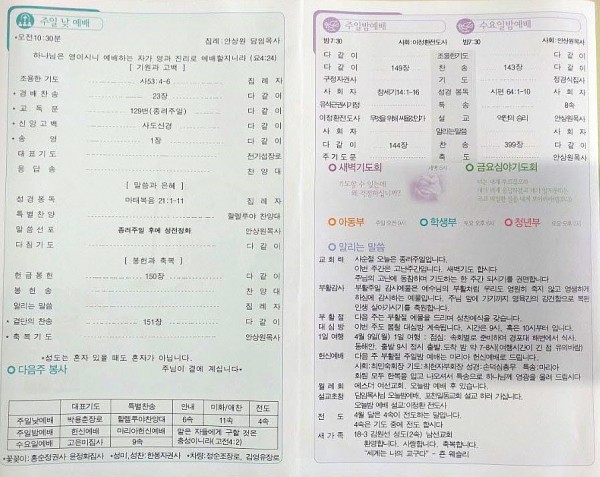 주일 낮 예배
*오전10:30분 집례: 안상원 담임목사
하나님은 영이시니 예배하는 자가 영과 진리로 예배할지니라 (요4:24)
[ 기원과 고백 ]
조용한 기도 사53:4-6 집 례 자
* 경 배 찬 송 23장 다 같 이
* 교 독 문 129번(종려주일) 다 같 이
* 신 앙 고 백 사도신경 다 같 이
* 송 영 1장 다 같 이
대 표 기 도 천기섭장로
응 답 송 찬 양 대
[ 말씀과 은혜 ]
성 경 봉 독 마태복음 21:1-11 집 례 자
특 별 찬 양 할렐루야 찬양대
말 씀 선 포 종려주일 후에 성전정화 안상원목사
다 짐 기 도 다 같 이
[ 봉헌과 축복 ]
헌 금 봉 헌 150장 다 같 이
봉 헌 송 찬 양 대
알리는 말씀 집 례 자
* 결단의 찬송 151장 다 같 이
* 축 복 기 도 안상원목사
*성도는 혼자 있을 때도 혼자가 아닙니다.
주님이 곁에 계십니다*
다음주 봉사
대표기도 특별찬송 안내 미화/애찬 전도
주일낮예배 박용춘장로 할렐루야찬양대 6속 11속 4속
주일밤예배 헌신예배 마리아헌신예배 맡은 자들에게 구할 것은
수요일예배 고은미집사 9속 충성이니라(고전4:2)
*꽃꽂이: 홍순장권사 윤정화집사 *성미,성찬: 한봉자권사 *차량: 정순조장로, 김영유장로
주일밤예배
밤7:30 사회: 이정환전도사
다 같 이 조용한기도
다 같 이 149장 찬 송
구정자권사 기 도
사 회 자 창세기14:1-16 성경 봉독
특 송
이정환전도사 설 교
사 회 자 알리는말씀
다 같 이 144장 찬 송
주 기 도 문 축 도
수요일밤예배
밤7:30 사회: 안상원목사
다 같 이
143장 다 같 이
정광식집사
시편 64:1-10 사 회 자
8속
역전의 승리 안상원목사
사 회 자
399장 다 같 이
안상원목사
새벽기도회
금요심야기도회
아동부 주일 오전 9시
학생부
청년부
알리는 말씀
교 회 력 사순절 오늘은 종려주일입니다.
이번 주간은 고난주간입니다. 새벽기도 합시다
주님의 고난에 동참하며 기도하는 한 주간 되시기를 권면합니다
부활감사 부활주일 감사예물은 예수님의 부활처럼 우리도 영원히 죽지 않고 영생하게
하심에 감사하는 예물입니다. 주님 앞에 가기까지 영육간의 강건함으로 복된
인생 살아가시기를 축원합니다.
부 활 절 다음 주는 부활절 예배를 드리며 성찬예식을 갖습니다.
대 심 방 이번 주도 봄철 대심방 계속됩니다. 시간은 9시, 혹은 10시부터 입니다.
1일 여행 4월 9일(월) 1일 여행 : 집심: 속회별로 준비하여 경포대 해변에서 식사.
동해안. 출발 9시 정시 출발, 도착 밤 약 7-8시(여행시간이 긴 점 유의바람)
헌신예배 다음 주 부활절 주일밤 예배는 마리아 헌신예배로 드립니다.
사회: 최민숙회장 기도: 최현자부회장 성경: 손덕심총무 특송: 마리아
회원 모두 한복을 입고 나오셔서 특송으로 하나님께 영광을 올려 드립시다
월 례 회 에스더 여선교회, 오늘밤 예배 후 있습니다.
설교초청 담임목사님 오늘밤예배, 포천일동교회 설교 하러 가십니다.
오늘밤 예배 설교: 이정환 전도사
전 도 4월 달은 4속이 전도하는 달입니다.
4속은 기도 중에 전도 합시다
새 가 족 18-3 김원선 성도(2속) 남선교회
환영합니다. 사랑합니다. 축복합니다.
"세계는 나의 교구다" - 존 웨슬리